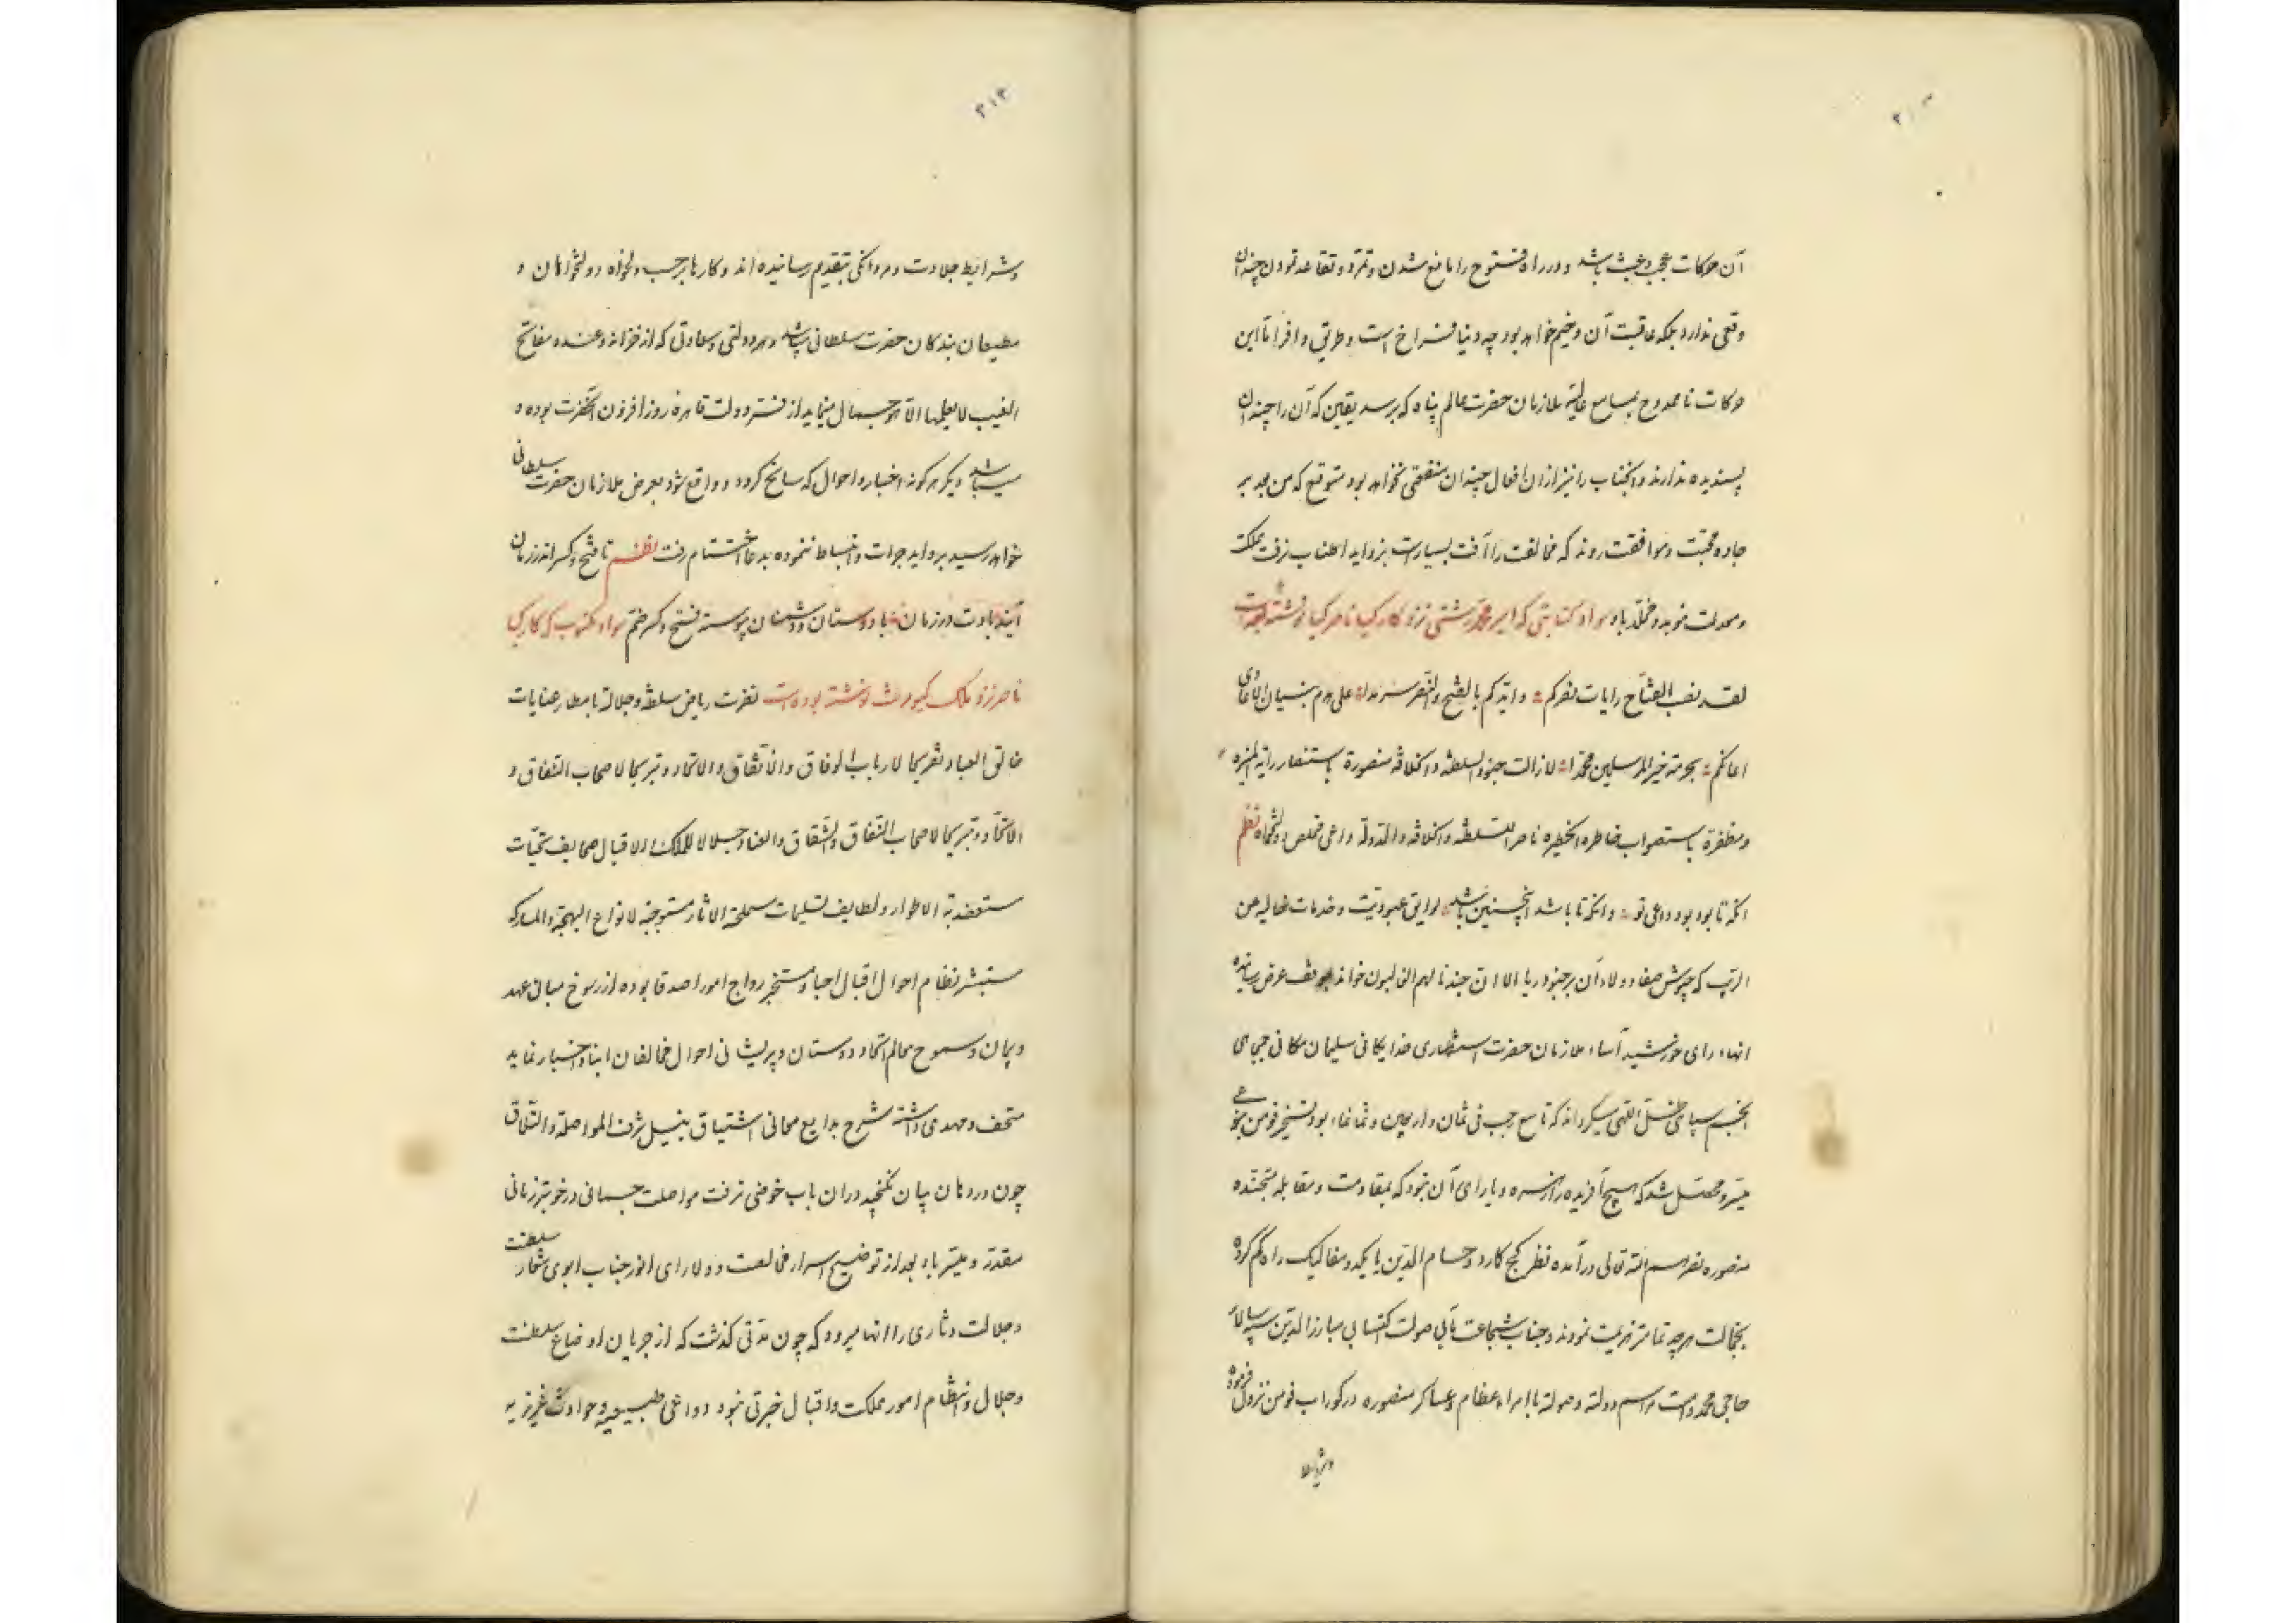 آن حرکات عجب و عبث باشد و در راه مفتوح را مانع شدن و تمرد و تقاعد نمودن چندان
وقعی ندارد بلکه عاقبت آن وخیم خواهد بود چه دنیا فراخ است و طریق وافر اما این
حرکات نامحدوح بمسامع عالیه ملازمان حضرت عالم پناه که برسد یقین که آن را چندان
پسندیده ندارند و آنجناب را نیز از آن افعال چندان منفعتی نخواهد بود متوقع که من بعد بر
جاده محبت و موافقت روند که مخالفت را آفت بسیارست بزواید اطناب نرفت مملکت
و معدلت موبد و مخلد باد سواد کتابتی که امیر محمد رشتی نزد کارکیا ناصر کیا نوشته بوده است
لقد نصب الفتاح رایات نصرکم و ایدکم بالفتح والنصر سرمدا علی هدم بنیان الاعادی
اعانکم بحرمة خیر المرسلین محمدا لا زالت جنود السلطنة والخلافة منصورة باستنصار رایه المنیره
و مظفرة باستصواب خاطره الخطیره ناصرا للسلطنة والخلافة والدولة داعی مخلص دولتخواه نظم
آنکه تا بود بود داعی تو و آنکه تا باشد آنچنین باشد لوایق عبودیت و خدمات خالیه عن
الریب که جیوش صفا و ولاء آن بر جنود ریا الا ان جندنا لهم الغالبون خواند بموقف عرض رسانیده
انهاء رای خورشید آساء ملازمان حضرت استظهاری خدایگانی سلیمان مکانی جمجاهی
انجم سپاهی ظل اللهی میگرداند که تاسع رجب فی ثمان و اربعین و ثمانمائه بود تسخیر فومن بنوعی
میسر و محصل شد که هیچ آفریده را زهره و یارای آن نبود که بمقاومت و مقابله متجنده
منصوره نصرهم الله تعالی درآمده نظر کج کارد و حسام الدین با یکدو مفاکیک راه گم کرده
بخجالت هرچه تمامتر هزیمت نمودند و جناب شجاعت مآبی صولت اکتسابی مبارز الدین سپاسالار
حاجی محمد دامت مراسم دولته و صولته با امراء عظام و عساکر منصوره در گوراب فومن نزول فرموده
و شرایط
۳۱۴
و شرایط جلادت و مردانگی بتقدیم رسانیده اند و کارها بر حسب دلخواه دولتخواهان و
مطیعان بندگان حضرت سلطانی باشد و هر دولتی و سعادتی که از خزانه و عنده مفاتح
الغیب لا یعلمها الا هو جمال مینماید از فتر دولت قاهره روزافزون آنحضرت بوده و
میباشد دیگر هر گونه اخبار و احوال که سانح گردد و واقع شود بعرض ملازمان حضرت سلطانی
خواهد رسید بزواید جرات و انبساط ننموده بدعا اختتام رفت نظم تا فتح و کسر اندر زمان
آینده بادت در زمان با دوستان و دشمنان پیوسته فتح و کسر ضم سواد مکتوب که کارکیا
ناصر نزد ملک کیومرث نوشته بوده است نضرت ریاض سلطنة و جلالة بامطار عنایات
خالق العباد تفریحا لارباب الوفاق والاتفاق والاتحاد و تبریحا لاصحاب النفاق و
الاتحاد و تبریحا لاصحاب النفاق والشقاق والعناد جلالا للملک والاقبال صحایف تحیات
مستعضدة الاطوار و لطایف تسلیمات مستملحة الاثار مستوجبة لانواع البهجة والمبارکه
مستبشر نظام احوال اقبال احبا و مستخبر رواج امور اصدقا بوده از رسوخ مبانی عهد
و پیمان و سموح معالم اتحاد دوستان و پریشانی احوال مخالفان انباء و اخبار نماید
متحف و مهدی داشته شرح بدایع معانی اشتیاق بنیل شرف المواصلة والتلاق
چون در دهان بیان نگنجید در آن باب خوضی نرفت مواصلت جسمانی در خوبتر زمانی
مقدر و میسر باد بعد از توضیح اسرار مخالصت و ولا رای انور جناب ابوی شعار سلطنت
و جلالت دثاری را انها میرود که چون مدتی گذشت که از جریان اوضاع سلطنت
و جلال و انتظام امور مملکت و اقبال خبرتی نبود دواعی طبیعیه و حوادث غریزیه